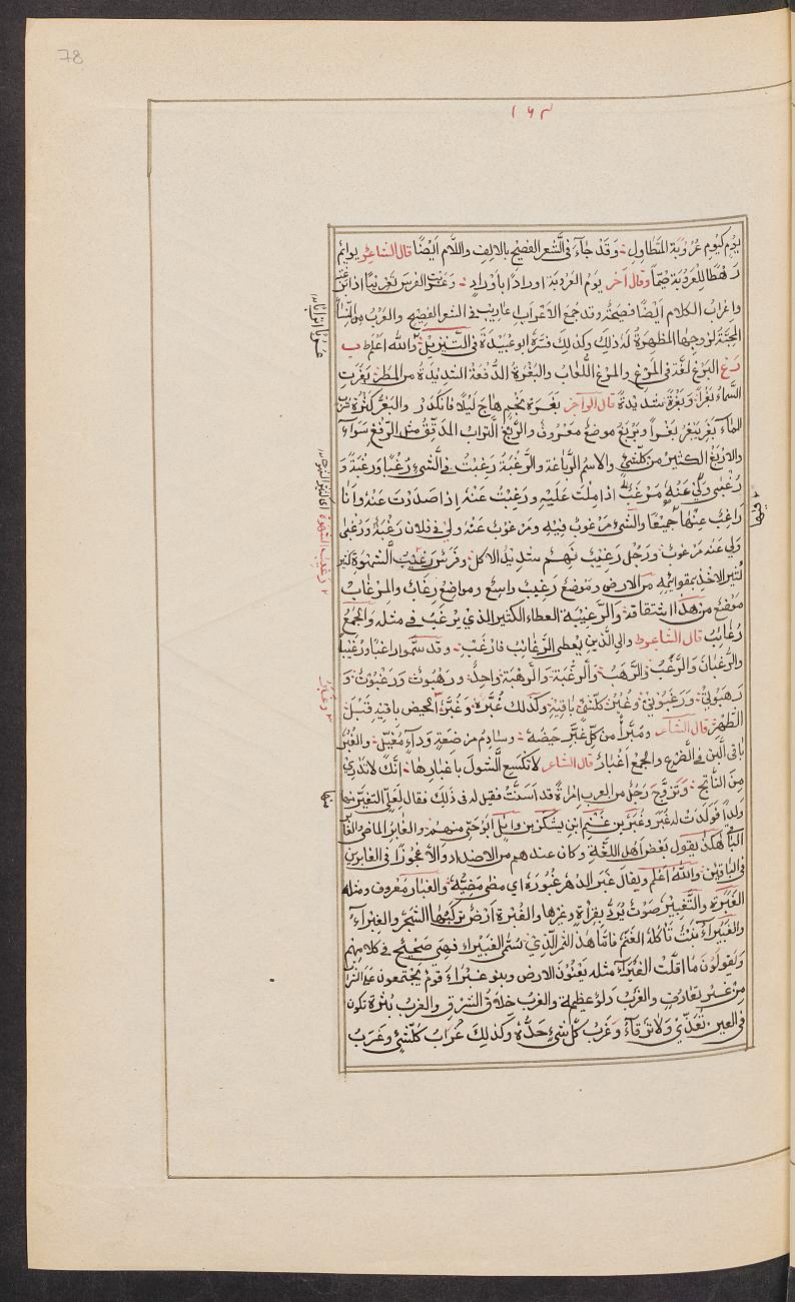 78
١٦٣
يوم كيوم عروبة المتطاول وقد جاء في الشعر الفصيح بالالف واللام ايضا قال الشاعر يوائم
رهطا للعروبة صيما وقال آخر يوم العروبة اورادا باوراد وعربت الفرس تعريبا اذا
واعراب الكلام ايضا فصيحة وقد جمع الاعراب اعاريب في الشعر الفصيح والعرب من النساء
المحبة لزوجها المظهرة له ذلك وكذلك فسره ابو عبيدة في التنزيل والله اعلم ب
رغ البرغ لغة في المرغ والمرغ اللعاب والبغرة الدفعة الشديدة من المطر بغرت
السماء بغرا وبغرة شديدة قال الراجز بغرة نجم هاج ليلا فانكدر والبغر كثرة شرب
الماء بغر يبغر بغرا وتربغ موضع معروف والربغ التراب المدقق مثل الرفغ سواء
والاربغ الكثير من كلشئ والاسم الرباغة والرغبة رغبت في الشئ رغبا ورغبة و
رغبى ولي عنه مرغب اذا ملت عليه ورغبت عنه إذا صددت عنه وانا
راغب عنها جميعا والشئ مرغوب فيه ومرغوب عنه ولي في فلان رغبة ورغبى
ولي عنه مرغوب ورجل رغيب نهم شديد الاكل وفرس رغيب الشهوة
كثير الاخذ بقوائمه من الارض وموضع رغيب واسع ومواضع رغاب والمرغاب
موضع من هذا اشتقاقه والرغيبة العطاء الكثير الذي يرغب في مثله والجمع
رغائب قال الشاعر والى الذين يعطى الرغائب فارغب وقد سموا راغبا ورغيبا
والرغبان والرغب والرهب والرغبة والرهبة واحد ورهبوت ورغبوت و
رهبوتي ورغبوتي وغبر كلشئ باقيه وكذلك غبره وغبر الحيض باقيه قبل
الطهر قال الشاعر ومبرأ من كل غبر حيضة وفساد مرضعة وداء مغيل والغبر
باقي اللبن في الضرع والجمع اغبار قال الشاعر لا تكسع الشول باغبارها انك لا تدري
من الناتج وتزوج رجل من العرب امرأة قد اسنت فقيل له في ذلك فقال لعلى اتغبر منها
ولدا فولدت له غبر وغبر بن غنم ابن يشكر بن وايل ابو حي منهم والغابر الماضي والغابر
الباقي هكذا يقول بعض اهل اللغة وكان عندهم من الاضداد والا عجوزا في الغابرين
في الباقين والله اعلم ويقال غبر الدهر غبوره اي مضى مضيه والغبار معروف ومثله
الغبرة والتغبير صوت يردد بقراءة وغيرها والغبرة ارض يركبها الشجر والغبراء
والغبيراء نبت تأكله الغنم فاما هذا الثمر الذي يسمى الغبيراء فهي صحيح في كلامهم
ويقولون ما اقلت الغبراء مثله يعنون الارض وبنو غبراء قوم يجتمعون على الشراب
من غير تعارف والغرب دلو عظيمة والغرب خلاف الشرق والغرب بثرة تكون
في العين تغذي ولا ترقأ وغرب كل شئ حده وكذلك غراب كلشئ وغرب
رغيب الشهوة
وغبار
منها